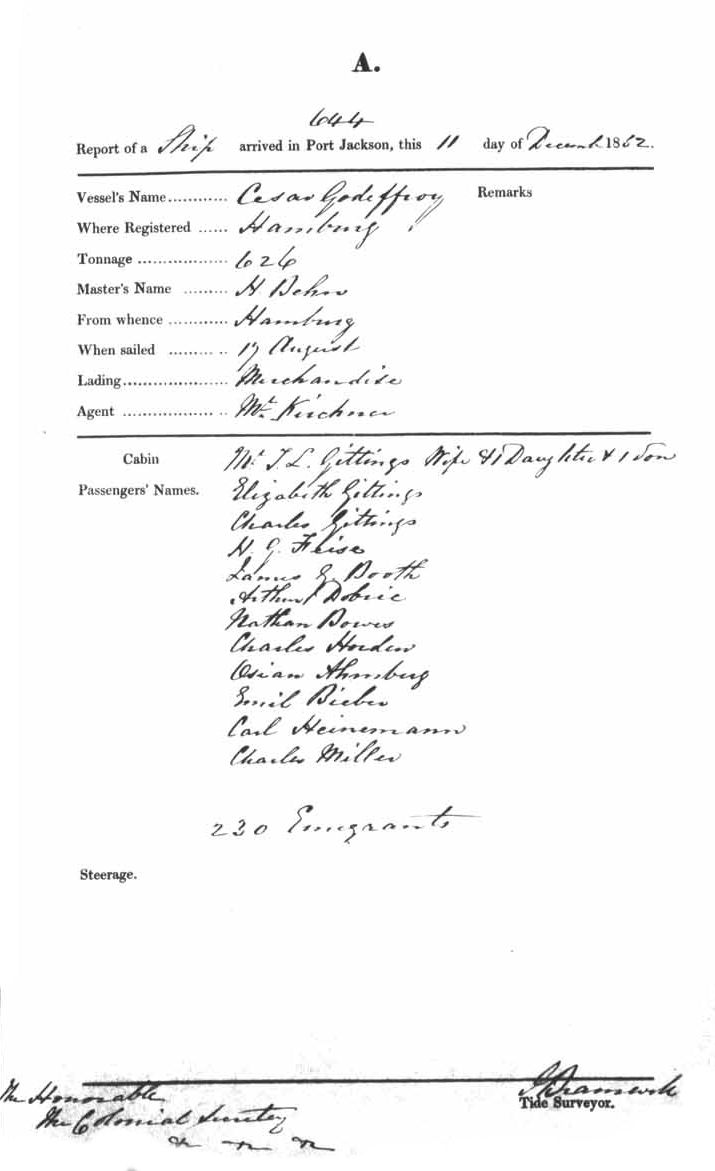 A.
644
Report of a Ship arrived in Port Jackson, this 11 day of Decemb 1852.
Vessel's Name............ Cesar Godeffroy Remarks
Where Registered ...... Hamburg
Tonnage .................. 626
Master's Name ......... H Behn
From whence ............ Hamburg
When sailed ............ 17 August
Lading..................... Merchandise
Agent ..................... Mr Kirchner
Cabin Mr T. L. Gittings Wife & 1 Daughter & 1 Son
Passengers' Names. Elizabeth Gittings
Charles Gittings
H. G. Feise
James G. Booth
Arthur
Nathan Bowes
Charles
Ahmburg
Emil Bieber
Carl Heinemann
Charles Miller
230 Emigrants
Steerage.
The Honorable
The Colonial Secretary
Tide Surveyor.